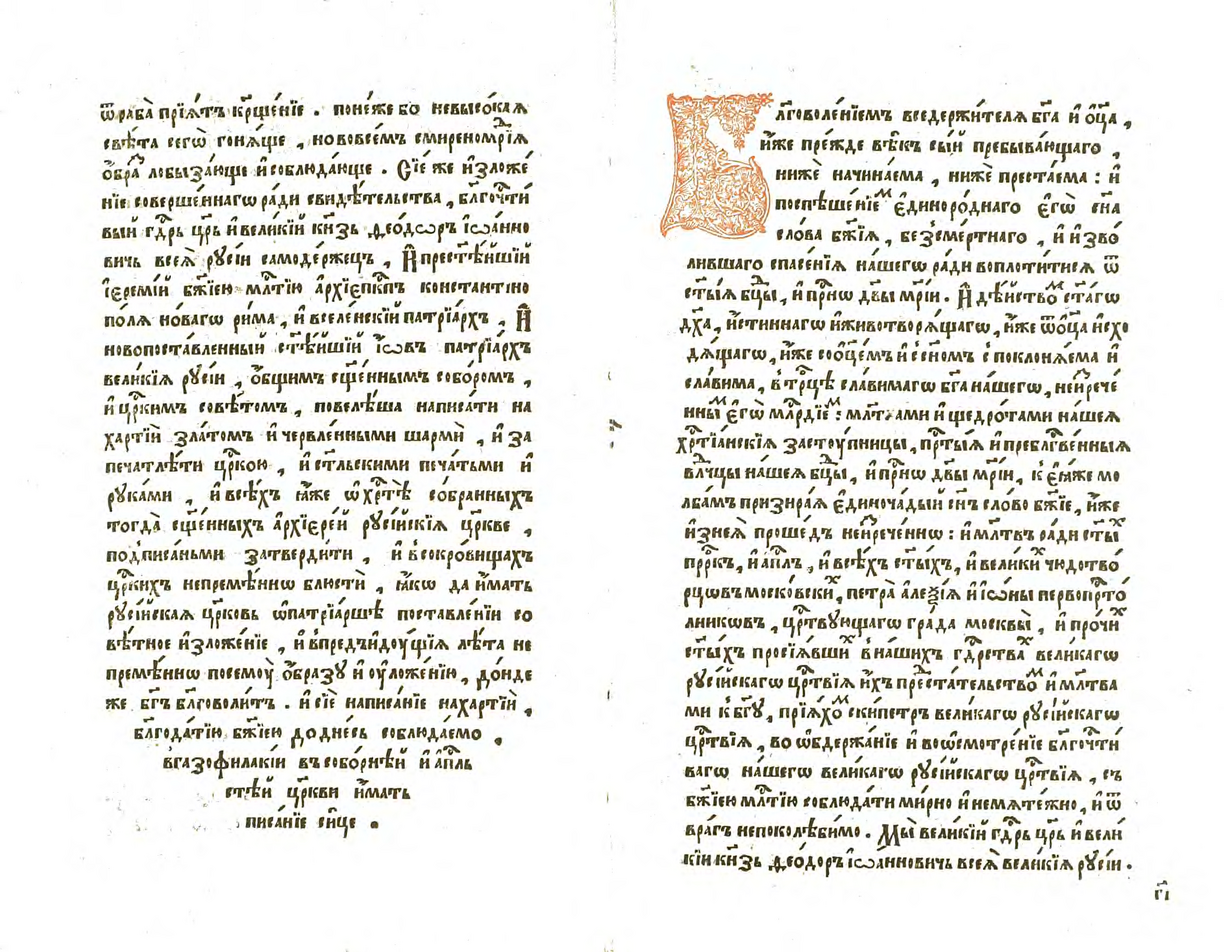 ѿ раба̀ прїѧ́тъ кр҃ще́нїе . поне́же бо невысо́каѧ
свѣ́та сегѡ̀ гонѧ́ще , но во всѐмъ смиреномрⷣїѧ
ѻ҆́бра лобыза́юще и҆ соблюда́юще . Сїе́ же и҆зложе́
нїе соверше́ннагѡ ра́ди свидѣ́тельства , бл҃гочⷭ҇ти
вый гдⷭ҇рь цр҃ь и҆ вели́кїй кнѧ́зь ѳео́дѡръ їѡа́нно
вичь всеѧ̀ рꙋсі́и самоде́ржецъ , И҆ прест҃ѣ́йшїй
і҆еремі́й бж҃їею млⷭ҇тїю а҆рхїепⷭ҇кпъ константїно
по́лѧ но́вагѡ ри́ма , и҆ вселе́нскїй патрїа́рхъ , И҆
новопоста́вленный ст҃ѣ́йшїй і҆́ѡвъ патрїа́рхъ
вели́кїѧ рꙋсі́и , ѻ҆́бщимъ сщ҃е́ннымъ собо́ромъ ,
и҆ црⷭ҇кимъ совѣ́томъ , повелѣ́ша написа́ти на
харті́й зла́томъ и҆ червле́нными шармѝ , и҆ за
печатлѣ́ти црⷭ҇кою , и҆ ст҃льскими печа́тьми и҆
рꙋка́ми , и҆ всѣ́хъ ꙗ҆́же ѡ҆ хрⷭ҇тѣ̀ со́бранныхъ
тогда̀ сщ҃е́нныхъ а҆рхїере́й рꙋсі́йскїѧ цр҃кве ,
под̾писа́ньми затверди́ти , и҆ в̾сокро́вищахъ
црⷭ҇кихъ непреме́ннѡ блюстѝ , ꙗ҆́кѡ да и҆́мать
рꙋсі́йскаѧ цр҃ковь ѡ҆ патрїа́ршѣ поставле́нїи со
вѣ́тное и҆зложе́нїе , и҆ впред̾идꙋ́щїѧ лѣ́та не
преме́ннѡ по семоу̀ ѻ҆́бразꙋ и҆ оу҆ложе́нїю , до́нде
же бг҃ъ бл҃говоли́тъ . и҆ сїѐ написа́нїе на харті́й ,
бл҃года́тїю бж҃їею до дне́сь соблюда́емо ,
в̾газофила́кїи въ собо́рнѣй и҆ а҆пⷭ҇ль
ст҃ѣ́й цр҃кви и҆́мать
писа́нїе си́це .
Бл҃говоле́нїемъ вседержи́телѧ бг҃а и҆ ѻ҆ц҃а̀ ,
и҆́же пре́жде вѣ́къ сы́й пребыва́ющаго ,
нижѐ начина́ема , нижѐ преста́ема : и҆
поспѣше́нїеⷨ є҆диноро́днаго є҆гѡ̀ сн҃а
сло́ва бж҃їѧ , безсме́ртнаго , и҆ и҆зво́
лившаго спасе́нїѧ на́шегѡ ра́ди воплоти́тисѧ ѿ
ст҃ы́ѧ бцⷣы , и҆ прⷭ҇нѡ дв҃ы мр҃і́и . И҆ дѣ́йствоⷨ ст҃а́гѡ
дх҃а , и҆́стиннагѡ и҆ животворѧ́щагѡ , и҆́же ѿ ѻ҆ц҃а̀ и҆схо
дѧ́щагѡ , и҆́же со ѻ҆ц҃е́мъ и҆ с̾ сн҃омъ спокланѧ́ема и҆
сла́вима , в̾ трⷪ҇цѣ сла́вимагѡ бг҃а на́шегѡ , неи҆зрече́
нныⷨ є҆гѡ̀ млⷭ҇рдїеⷨ : млⷭ҇тѧми и҆ щедро́тами на́шеѧ
хрⷭ҇тїа́нскїѧ засто́упницы , прⷭ҇тыѧ и҆ пребл҃гⷭ҇ве́нныѧ
влⷣчцы на́шеѧ бцⷣы , и҆ прⷭ҇нѡ дв҃ы мр҃і́и , к̾ е҆́йже мо
лба́мъ призира́ѧ є҆диноча́дый сн҃ъ сло́во бж҃їе , и҆́же
и҆з̾неѧ̀ проше́дъ неи҆зрече́ннѡ : и҆ млⷭ҇твъ ра́ди ст҃ыⷯ
прⷪ҇ркъ , и҆ а҆пⷭ҇лъ , и҆ всѣ́хъ ст҃ы́хъ , и҆ вели́киⷯ чюдотво́
рцѡвъ моско́вскиⷯ , петра̀ але́ѯїѧ и҆ і҆ѡ́ны первопрⷭ҇то́
лникѡвъ , црⷭ҇твꙋющагѡ гра́да москвы̀ , и҆ про́чиⷯ
ст҃ы́хъ просїѧ́вшиⷯ в̾ на́шихъ гдⷭ҇рстваⷯ вели́кагѡ
рꙋсі́йскагѡ црⷭ҇твїѧ и҆́хъ предста́тельствоⷨ и҆ млⷭ҇тва
ми к̾ бг҃ꙋ , прїѧ́хоⷨ ски́петръ вели́кагѡ рꙋсі́йскагѡ
црⷭ҇твїѧ , во ѡ҆бдержа́нїе и҆ во ѡ҆смотре́нїе бл҃гочⷭ҇ти
вагѡ на́шегѡ вели́кагѡ рꙋсі́йскагѡ црⷭ҇твїѧ , съ
бж҃їею млⷭ҇тїю соблюда́ти ми́рно и҆ немѧте́жно , и҆ ѿ
вра́гъ непоколѣ́бимо . Мы̀ вели́кїй гдⷭ҇рь цр҃ь и҆ вели́
кїи кнѧ́зь ѳео́доръ і҆ѡа́нновичь всеѧ̀ вели́кїѧ рꙋсі́и .
г҃і